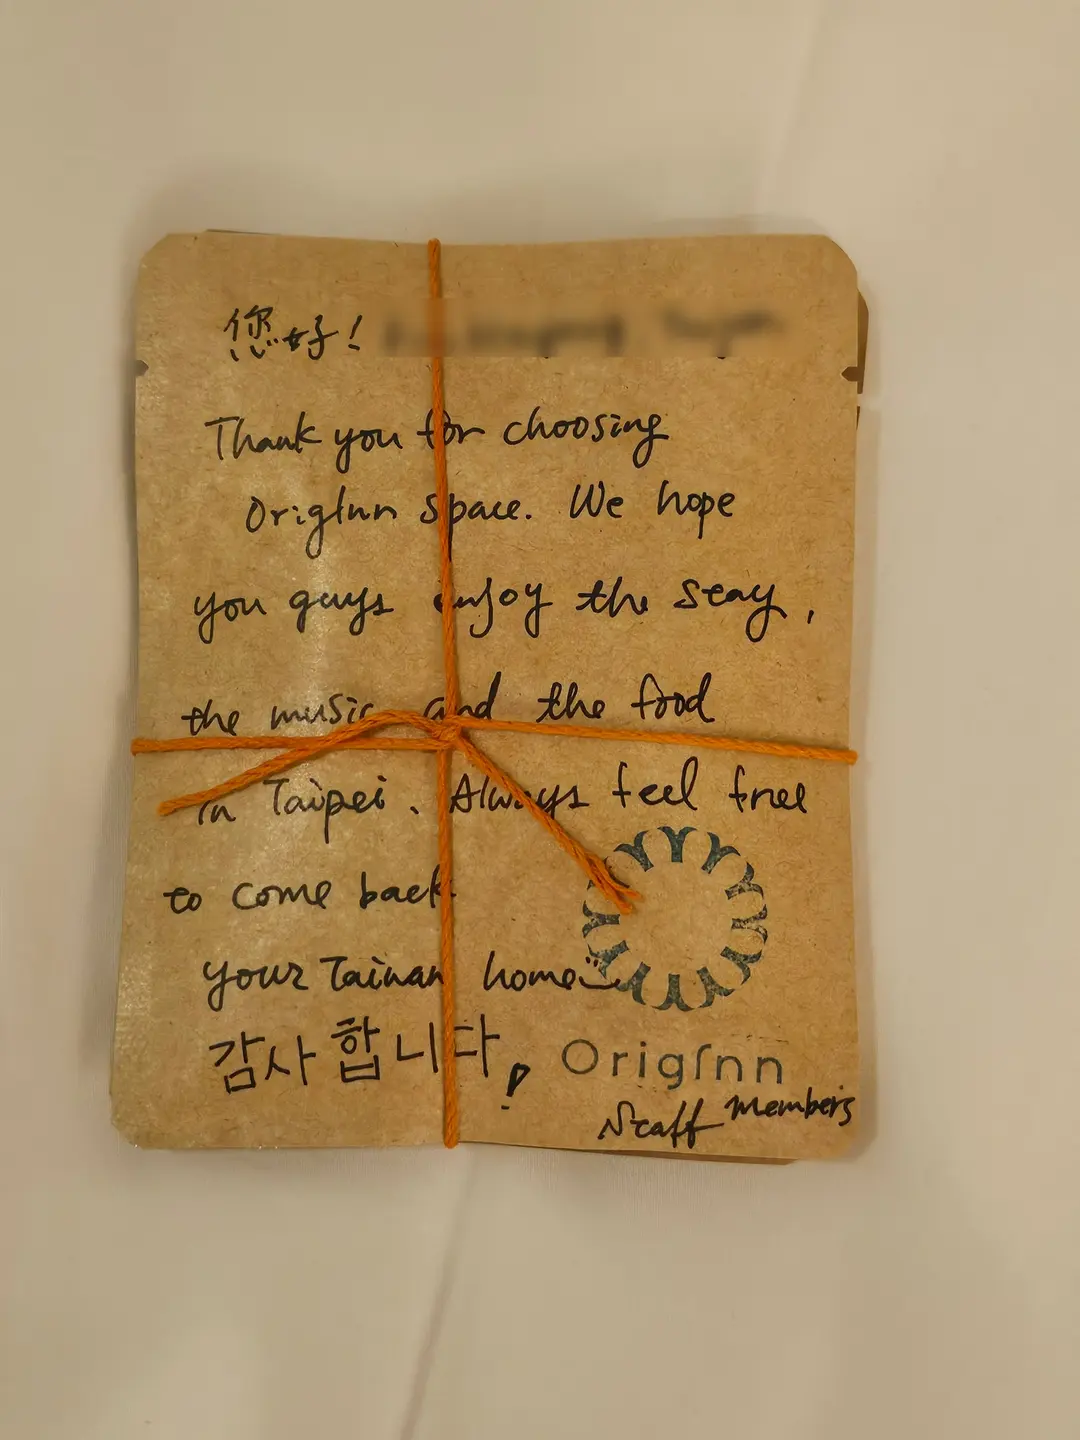 您好!
Thank you for choosing
OrigInn Space. We hope
you guys enjoy the stay,
the music and the food
in Taipei. Always feel free
to come back
your Tainan home
감사합니다!
OrigInn
Staff members